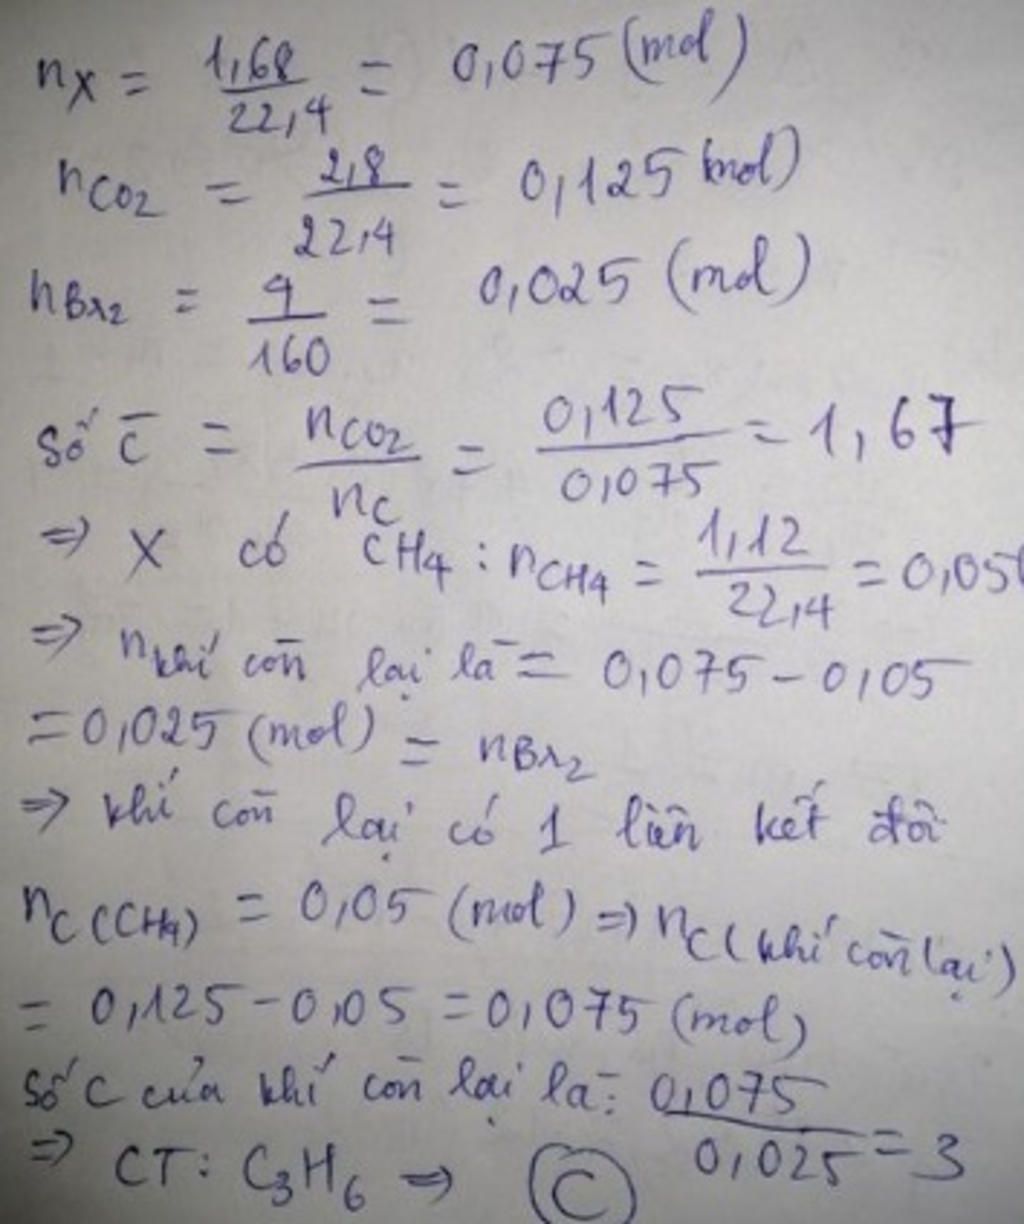 nX = 1,68 / 22,4 = 0,075 (mol)
nCO2 = 2,8 / 22,4 = 0,125 mol)
nBr2 = 4 / 160 = 0,025 (mol)
Số C̄ = nCO2 / nC = 0,125 / 0,075 = 1,67
=> X có CH4 : nCH4 = 1,12 / 22,4 = 0,05
=> nkhí còn lại là = 0,075 - 0,05
= 0,025 (mol) = nBr2
=> khí còn lại có 1 liên kết đôi
nC (CH4) = 0,05 (mol) => nC (khí còn lại)
= 0,125 - 0,05 = 0,075 (mol)
Số C của khí còn lại là: 0,075 / 0,025 = 3
=> CT: C3H6 => C